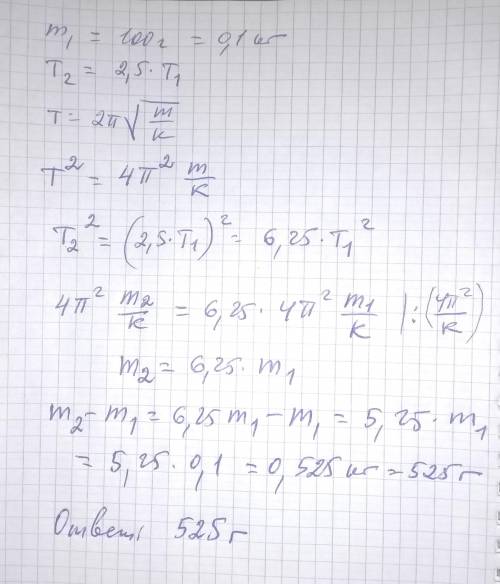 m₁ = 100г = 0,1 кг
T₂ = 2,5·T₁
T = 2π√(m/к)
T² = 4π² m/к
T₂² = (2,5·T₁)² = 6,25·T₁²
4π² m₂/к = 6,25·4π² m₁/к |:(4π²/к)
m₂ = 6,25·m₁
m₂ - m₁ = 6,25m₁ - m₁ = 5,25·m₁
= 5,25·0,1 = 0,525 кг = 525г
Ответ: 525г